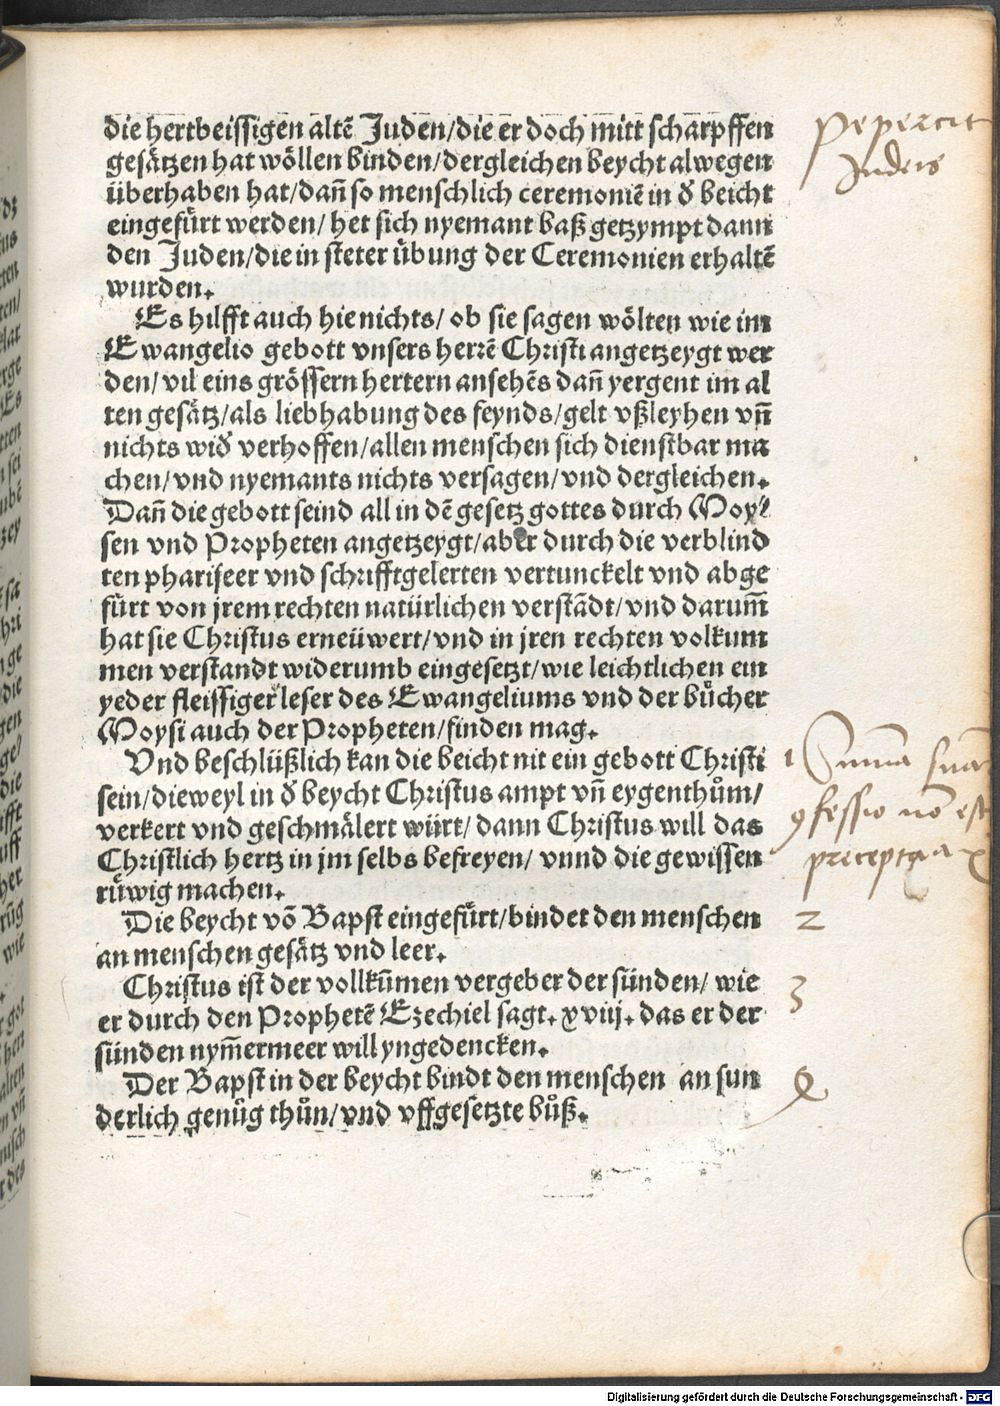 die hertbeissigen altē Juden/die er doch mitt scharpffen
gesätzen hat wöllen binden/dergleichen beycht alwegen
überhaben hat/dañ so menschlich ceremoniē in ď beicht
eingefürt werden/ het sich nyemant baß getzympt dann
den Juden/die in steter übung der Ceremonien erhaltē
wurden.
Es hilfft auch hie nichts/ ob sie sagen wölten wie im
Ewangelio gebott vnsers herrē Christi angetzeygt wer
den/ vil eins grössern hertern ansehēs dañ yergent im al
ten gesätz/als liebhabung des feynds/gelt vßleyhen vñ
nichts wiď verhoffen/allen menschen sich dienstbar ma
chen/vnd nyemants nichts versagen/vnd dergleichen.
Dañ die gebott seind all in dē gesetz gottes durch Moy⸗
sen vnd Propheten angetzeygt/aber durch die verblind
ten phariseer vnd schrifftgelerten vertunckelt vnd abge
fürt von jrem rechten natürlichen verstādt/vnd darum̄
hat sie Christus erneüwert/vnd in jren rechten volkum
men verstandt widerumb eingesetzt/wie leichtlichen ein
yeder fleissiger leser des Ewangeliums vnd der bücher
Moysi auch der Propheten/finden mag.
Vnd beschlüßlich kan die beicht nit ein gebott Christi
sein/dieweyl in ď beycht Christus ampt vñ eygenthům/
verkert vnd geschmälert würt/ dann Christus will das
Christlich hertz in jm selbs befreyen/ vnnd die gewissen
rüwig machen.
Die beycht vō Bapst eingefürt/bindet den menschen
an menschen gesätz vnd leer.
Christus ist der vollkūmen vergeber der sünden/ wie
er durch den Prophetē Ezechiel sagt. xviij. das er der
sünden nym̄ermeer will yngedencken.
Der Bapst in der beycht bindt den menschen an sun
derlich genůg thůn/vnd vffgesetzte bůß.
pepercit
Judeis
1 Summa
ꝯfessio nō est
2
3
4
Digitalisierung gefördert durch die Deutsche Forschungsgemeinschaft - DFG